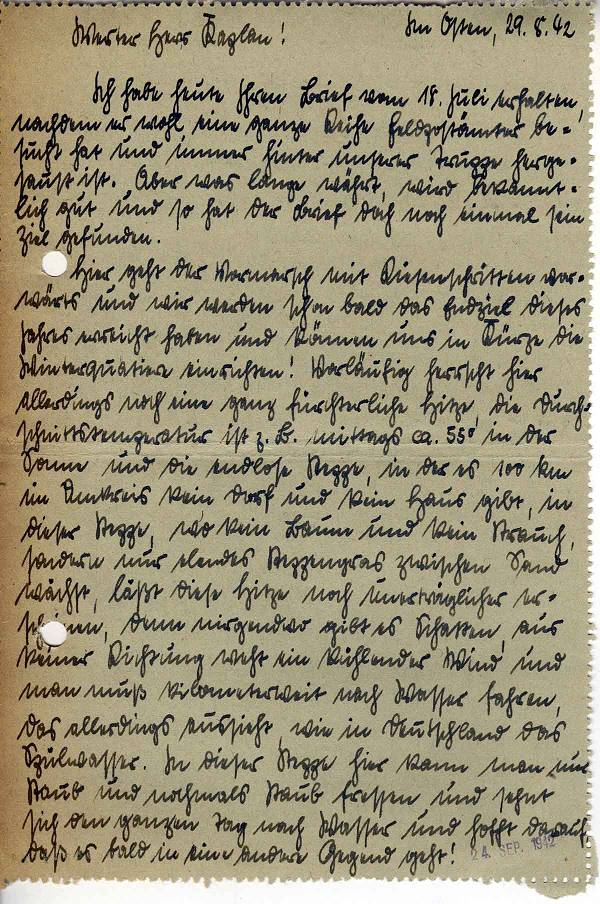 Im Osten, 29.8.42
Werter Herr Kaplan!
Ich habe heute Ihren Brief vom 18. Juli erhalten,
nachdem er wohl eine ganze Reihe Feldpostämter be=
sucht hat und immer hinter unserer Truppe herge=
saust ist. Aber was lange währt, wird bekannt=
lich gut und so hat der Brief doch noch einmal sein
Ziel gefunden.
Hier geht der Vormarsch mit Riesenschritten vor=
wärts und wir werden schon bald das Endziel dieses
Jahres erreicht haben und können uns in Kürze die
Winterquatiere einrichten! Vorläufig herrscht hier
allerdings noch eine ganz fürchterliche Hitze, die Durch=
schnittstemperatur ist z. B. mittags ca. 55° in der
Sonne und die endlose Steppe, in der es 100 km
im Umkreis kein Dorf und kein Haus gibt, in
dieser Steppe, wo kein Baum und kein Strauch,
sondern nur elendes Steppengras zwischen Sand
wächst, läßt diese Hitze noch unerträglicher er=
scheinen, denn nirgendwo gibt es Schatten, aus
keiner Richtung weht ein kühlender Wind und
man muß kilometerweit nach Wasser fahren,
das allerdings aussieht, wie in Deutschland das
Spülwasser. In dieser Steppe hier kann man nur
Staub und nochmals Staub fressen und sehnt
sich den ganzen Tag nach Wasser und hofft darauf,
daß es bald in eine andere Gegend geht!
24. SEP. 1942